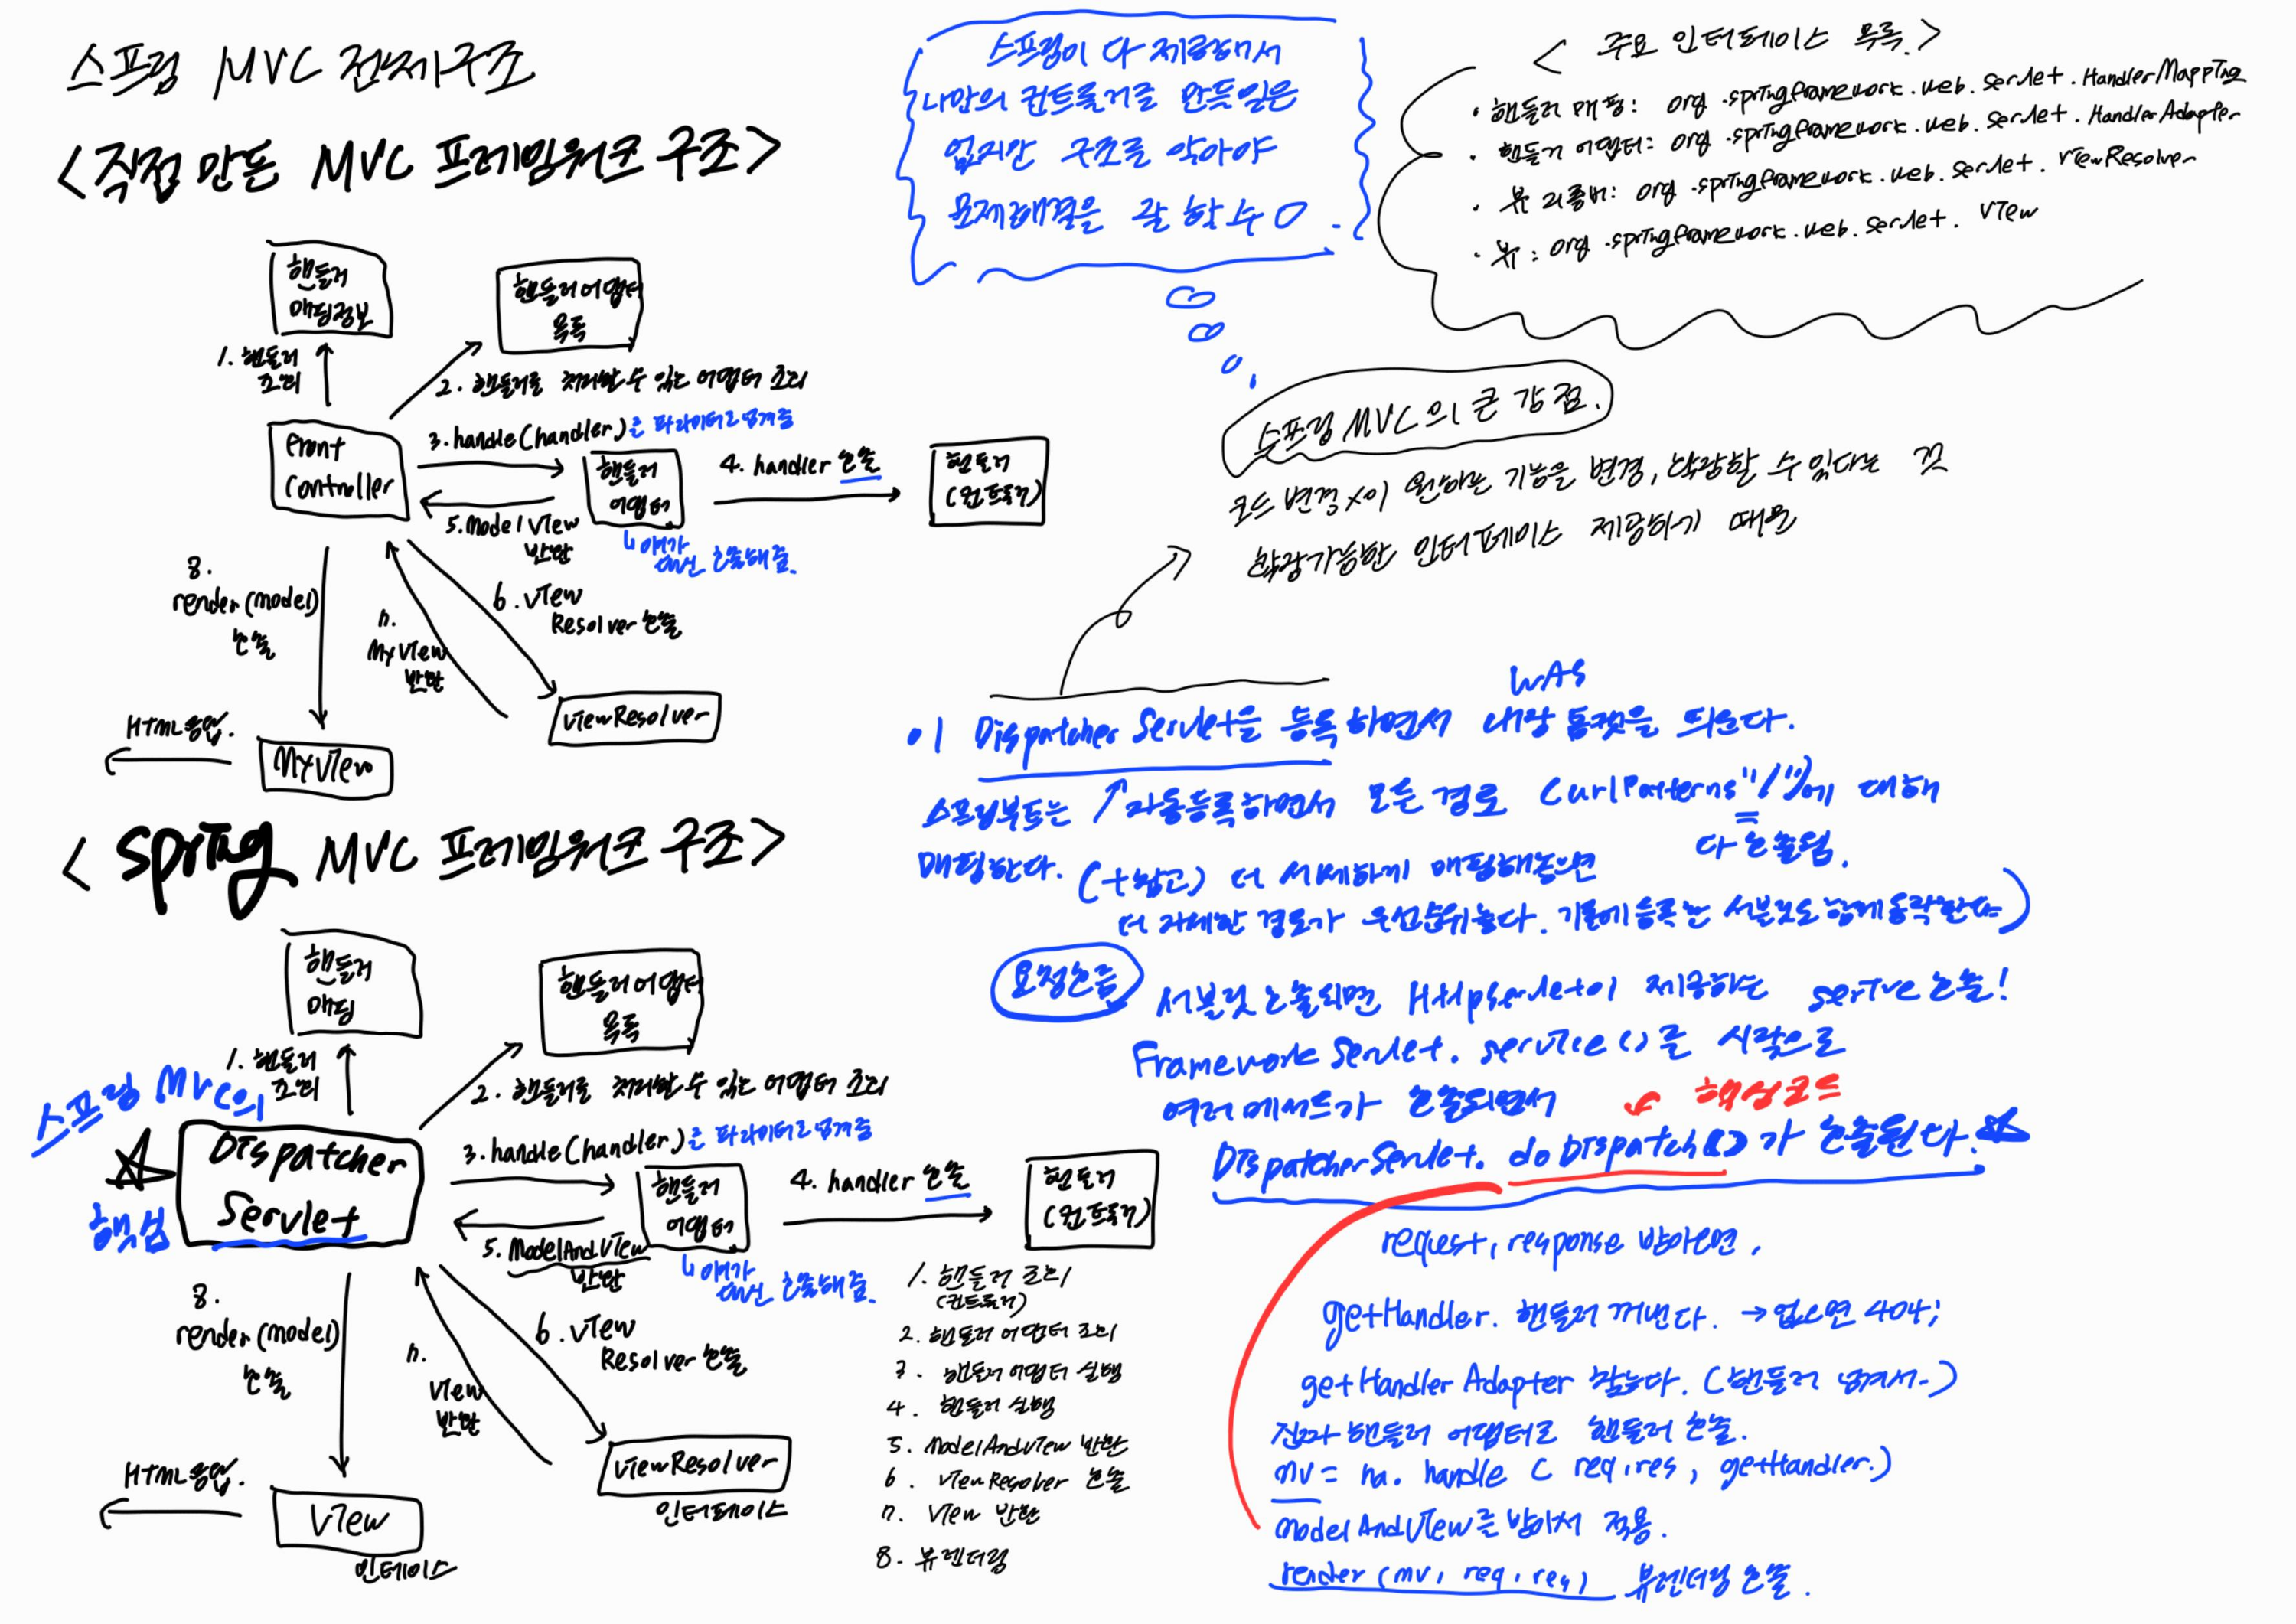 스프링 MVC 전체구조
<직접 만든 MVC 프레임워크 구조>
핸들러
매핑정보
핸들러 어댑터
목록
1. 핸들러
조회
2. 핸들러를 처리할 수 있는 어댑터 조회
3. handle(handler)를 파라미터로 넘겨줌
Front
Controller
핸들러
어댑터
4. handler 호출
핸들러
(컨트롤러)
5. Model View
반환
↳ 얘가
대신 호출해줌.
6. View
Resolver 호출
7.
My View
반환
8.
render(model)
호출
viewResolver
HTML응답.
MyView
<Spring MVC 프레임워크 구조>
핸들러
매핑
핸들러 어댑터
목록
1. 핸들러
조회
2. 핸들러를 처리할 수 있는 어댑터 조회
스프링 MVC의
핵심
Dispatcher
Servlet
3. handle(handler)를 파라미터로 넘겨줌
핸들러
어댑터
4. handler 호출
핸들러
(컨트롤러)
5. ModelAndView
반환
↳ 얘가
대신 호출해줌.
6. View
Resolver 호출
7.
View
반환
8.
render(model)
호출
viewResolver
인터페이스
HTML응답.
View
인터페이스
1. 핸들러 조회
(컨트롤러)
2. 핸들러 어댑터 조회
3. 핸들러 어댑터 실행
4. 핸들러 실행
5. ModelAndView 반환
6. viewResolver 호출
7. View 반환
8. 뷰렌더링
스프링이 다 제공해서
나만의 컨트롤러를 만들일은
없지만 구조를 알아야
문제해결을 잘 할 수 O.
< 주요 인터페이스 목록.>
· 핸들러 매핑: org.springframework.web.servlet.HandlerMapping
· 핸들러 어댑터: org.springframework.web.servlet.HandlerAdapter
· 뷰 리졸버: org.springframework.web.servlet.ViewResolver
· 뷰: org.springframework.web.servlet.View
스프링 MVC의 큰 강점.
코드 변경 X이 원하는 기능을 변경, 확장할 수 있다는 것
확장가능한 인터페이스 제공하기 때문
WAS
이 Dispatcher Servlet을 등록하면서 내장 톰캣을 띄운다.
스프링부트는 ↑자동등록하면서 모든 경로 (urlPatterns"/")에 대해
다 호출됨.
매핑한다. (+참고) 더 자세하게 매핑해놓으면
더 자세한 경로가 우선순위높다. 기존에 등록한 서블릿도 함께 동작한다)
요청흐름
서블릿 호출되면 HttpServlet이 제공하는 serive 호출!
Framework Servlet. service()를 시작으로
여러 메서드가 호출되면서
핵심코드
DispatcherServlet. doDispatch()가 호출된다.☆
request, response 받아오면,
getHandler. 핸들러 꺼낸다. → 없으면 404;
getHandlerAdapter 찾는다. (핸들러 넘겨서.)
진짜 핸들러 어댑터로 핸들러 호출.
mv = ha. handle ( req, res, getHandler.)
modelAndView를 받아서 적용.
render (mv, req, res) 뷰렌더링 호출.